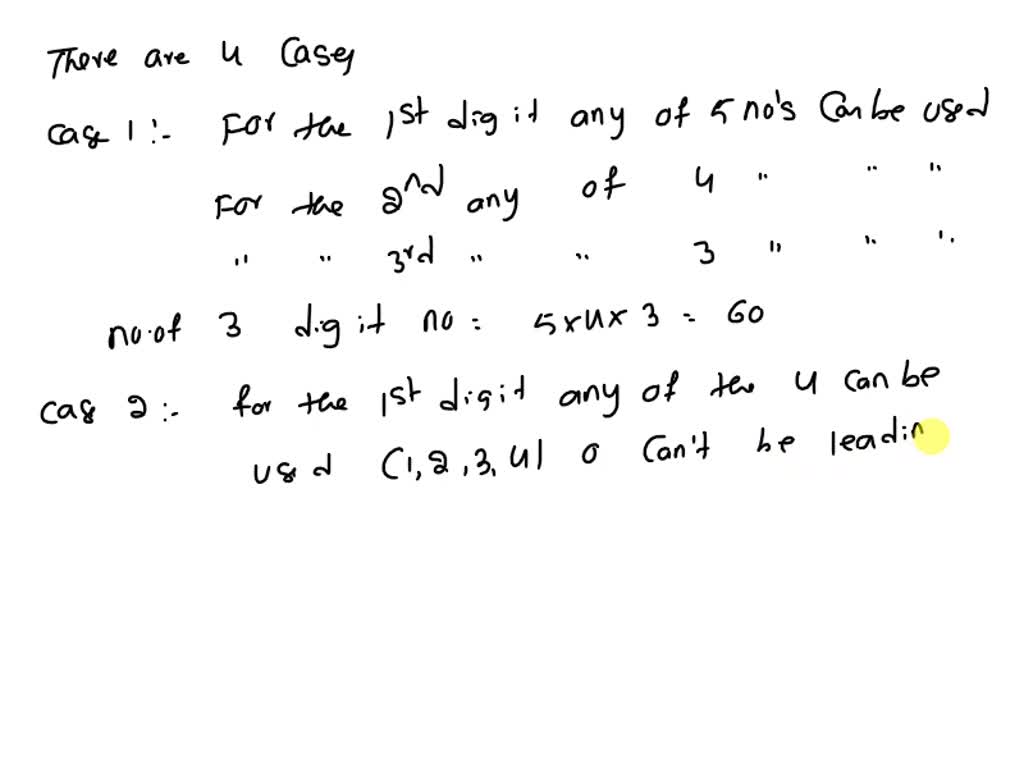 There are 4 Cases
Case 1 :- For the 1st digit any of 5 no's Can be used
For the 2nd any of 4 " " "
" " 3rd " " 3 " " "
no. of 3 digit no = 5 x 4 x 3 = 60
Case 2 :- for the 1st digit any of the 4 can be
used (1, 2, 3, 4) 0 Can't be leadin